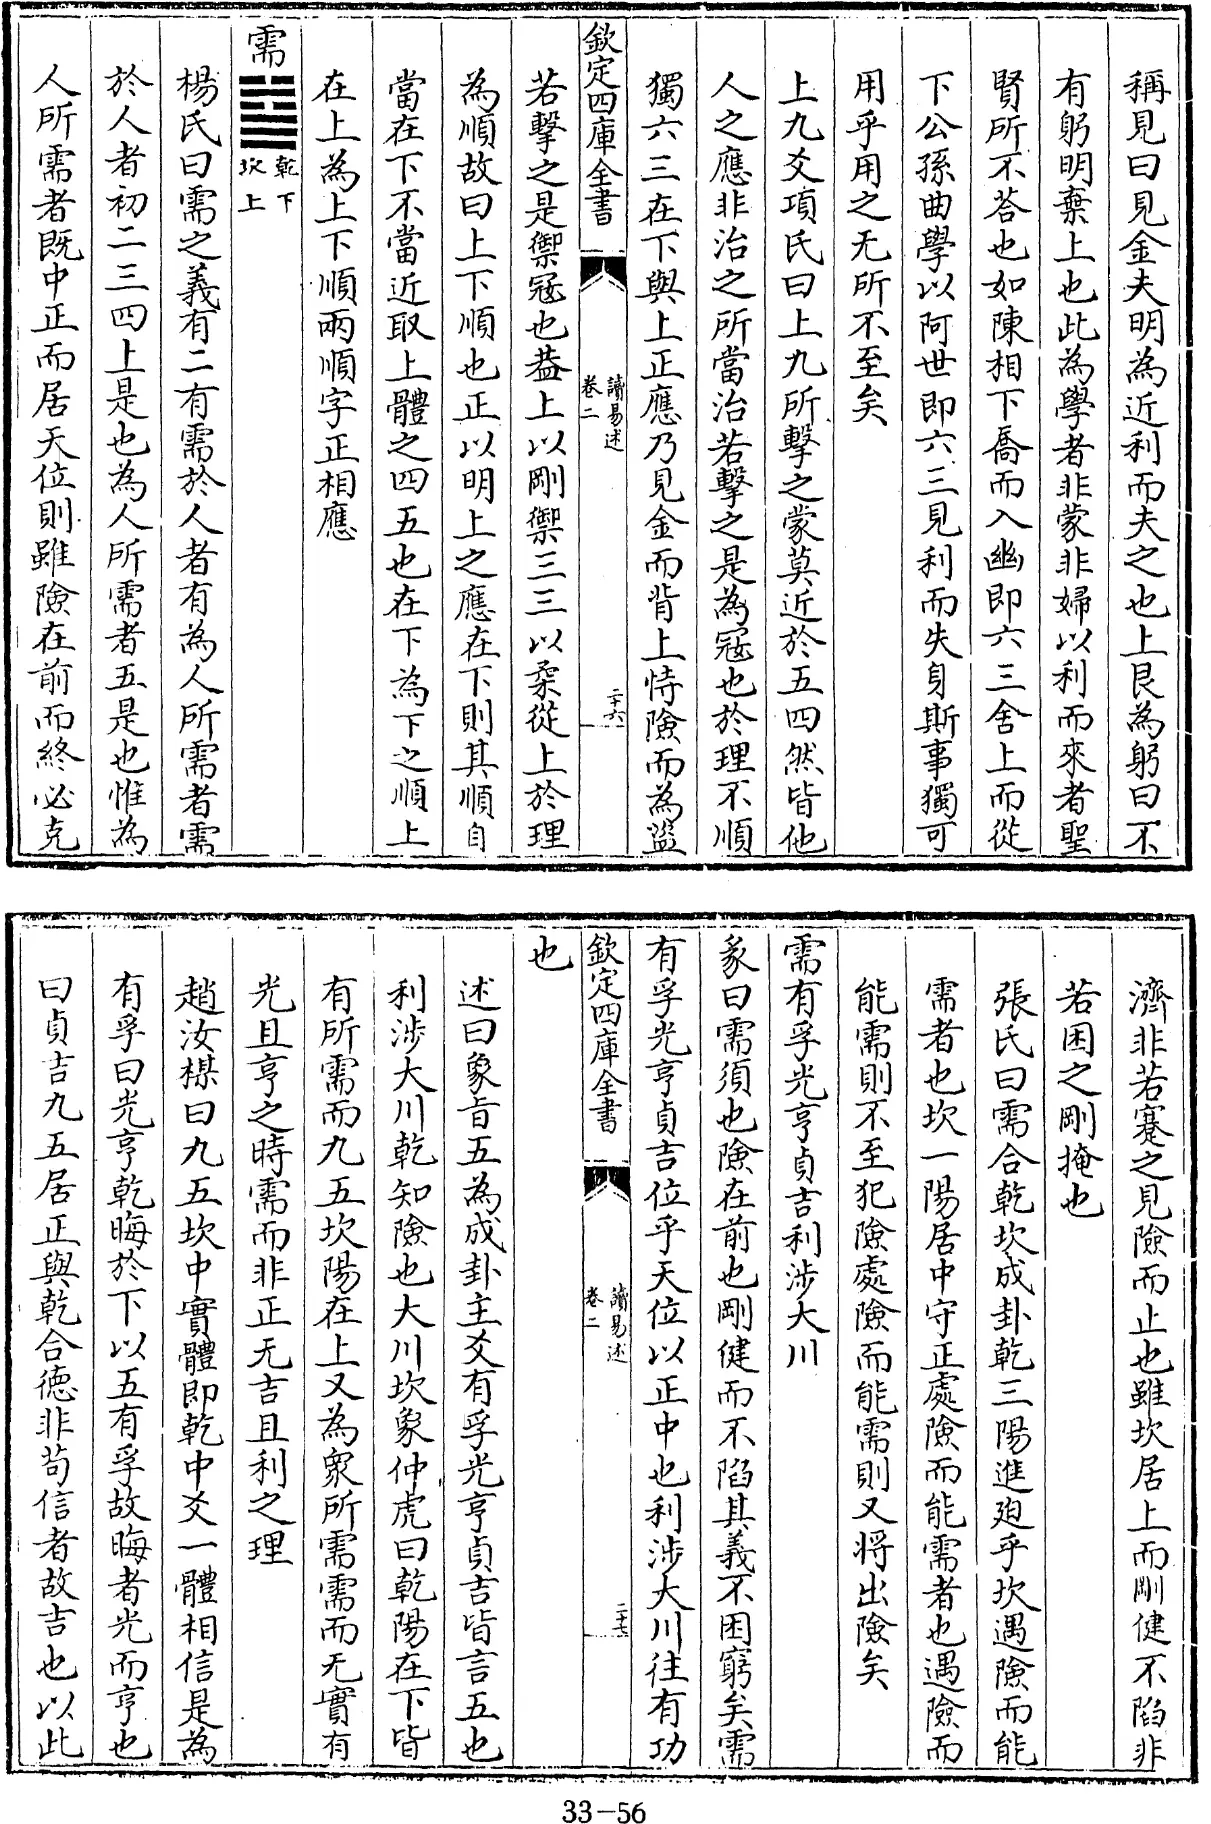 稱見曰見金夫明為近利而夫之也上艮為躬曰不
有躬明棄上也此為學者非蒙非婦以利而來者聖
賢所不荅也如陳相下喬而入幽即六三舍上而從
下公孫曲學以阿世即六三見利而失身斯事獨可
用乎用之无所不至矣
上九爻項氏曰上九所擊之蒙莫近於五四然皆他
人之應非治之所當治若擊之是為冦也於理不順
獨六三在下與上正應乃見金而背上恃險而為盜
欽定四庫全書
讀易述
卷二
二十六
若擊之是禦冦也葢上以剛禦三三以柔從上於理
為順故曰上下順也正以明上之應在下則其順自
當在下不當近取上體之四五也在下為下之順上
在上為上下順兩順字正相應
需 乾下
坎上
楊氏曰需之義有二有需於人者有為人所需者需
於人者初二三四上是也為人所需者五是也惟為
人所需者既中正而居天位則雖險在前而終必克
濟非若蹇之見險而止也雖坎居上而剛健不陷非
若困之剛掩也
張氏曰需合乾坎成卦乾三陽進廹乎坎遇險而能
需者也坎一陽居中守正處險而能需者也遇險而
能需則不至犯險處險而能需則又將出險矣
需有孚光亨貞吉利涉大川
彖曰需須也險在前也剛健而不陷其義不困窮矣需
有孚光亨貞吉位乎天位以正中也利涉大川往有功
欽定四庫全書
讀易述
卷二
二十七
也
述曰象旨五為成卦主爻有孚光亨貞吉皆言五也
利涉大川乾知險也大川坎象仲虎曰乾陽在下皆
有所需而九五坎陽在上又為衆所需需而无實有
光且亨之時需而非正无吉且利之理
趙汝楳曰九五坎中實體即乾中爻一體相信是為
有孚曰光亨乾晦於下以五有孚故晦者光而亨也
曰貞吉九五居正與乾合德非苟信者故吉也以此
33-56